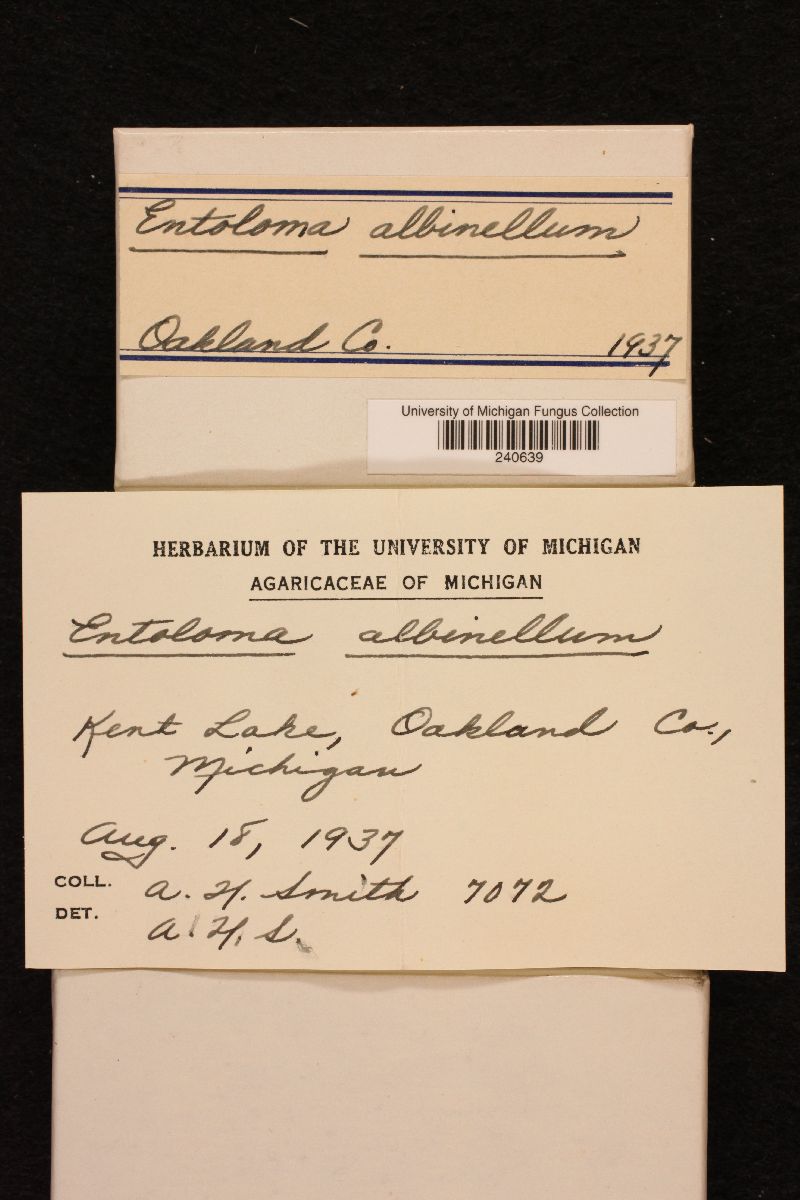 Entoloma albinellum
Oakland Co. 1937
University of Michigan Fungus Collection
240639
HERBARIUM OF THE UNIVERSITY OF MICHIGAN
AGARICACEAE OF MICHIGAN
Entoloma albinellum
Kent Lake, Oakland Co.,
Michigan
Aug. 18, 1937
COLL. A. H. Smith 7072
DET. A. H. S.